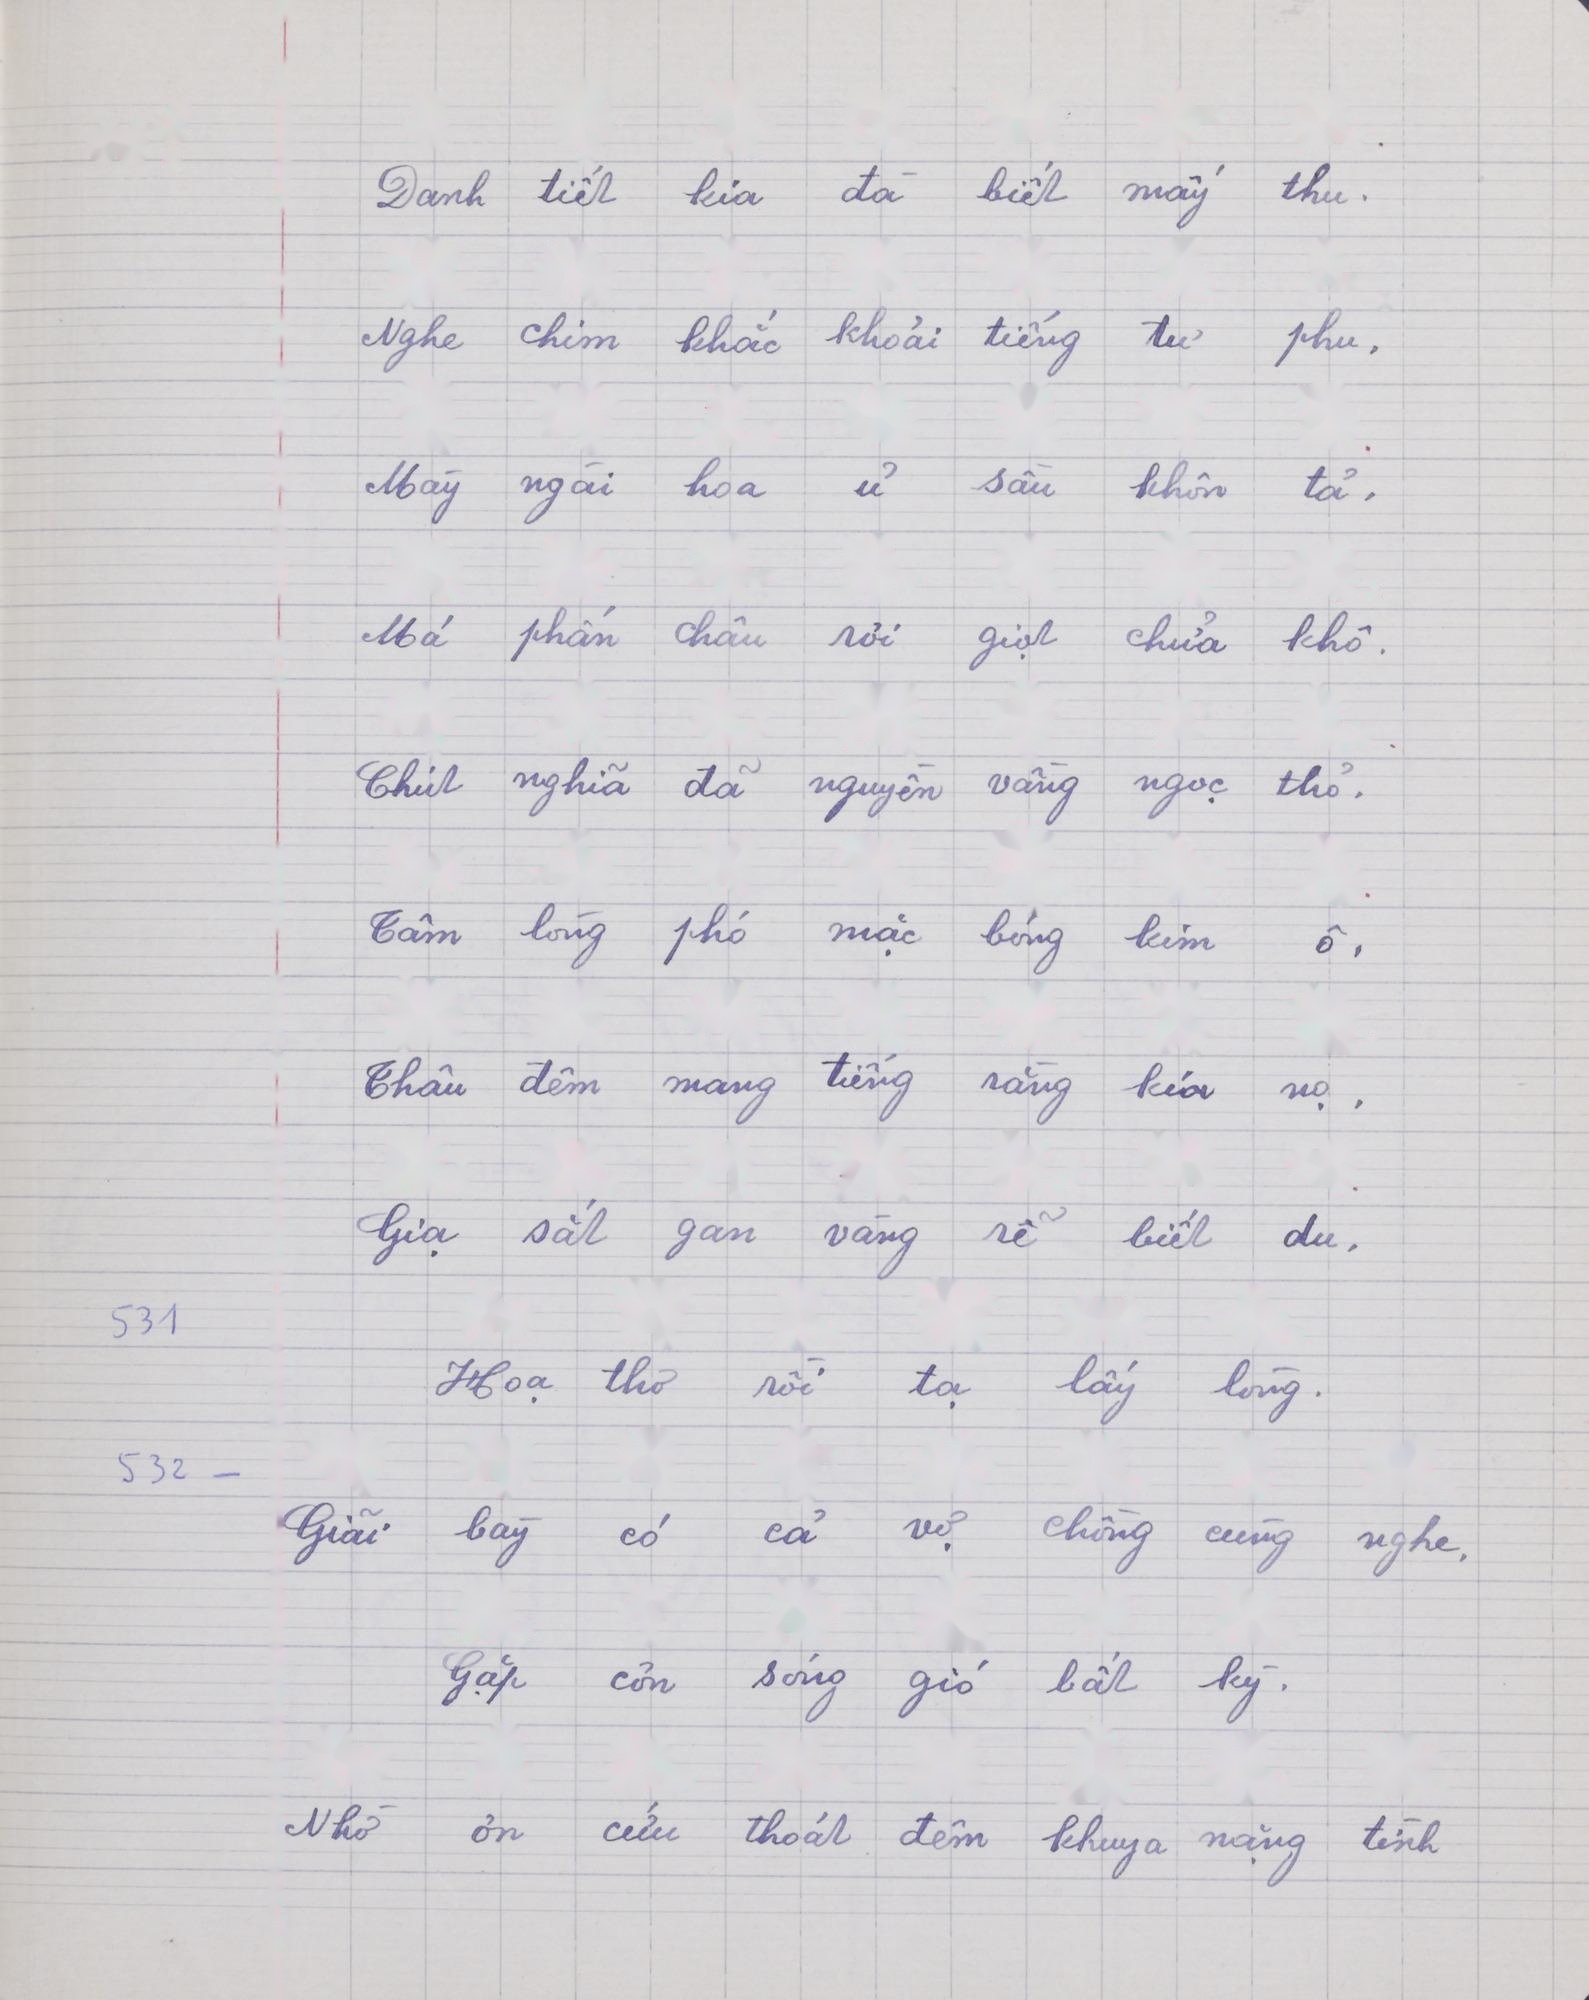 Danh tiết kia đà biết mấy thu.
Nghe chim khắc khoải tiếng tư phu,
Mày ngài hoa ủ sầu khôn tả,
Má phấn châu rơi giọt chửa khô.
Chút nghĩa đã nguyền vầng ngọc thỏ,
Tâm lòng phó mặc bóng kim ô,
Thâu đêm mang tiếng rằng kia nọ,
Giạ sắt gan vàng rễ biết du,
531
Hoạ thơ rồi tạ lấy lòng.
532 –
Giãi bày có cả vợ chồng cùng nghe,
Gặp cơn sóng gió bất kỳ.
Nhờ ơn cứu thoát đêm khuya nặng tình